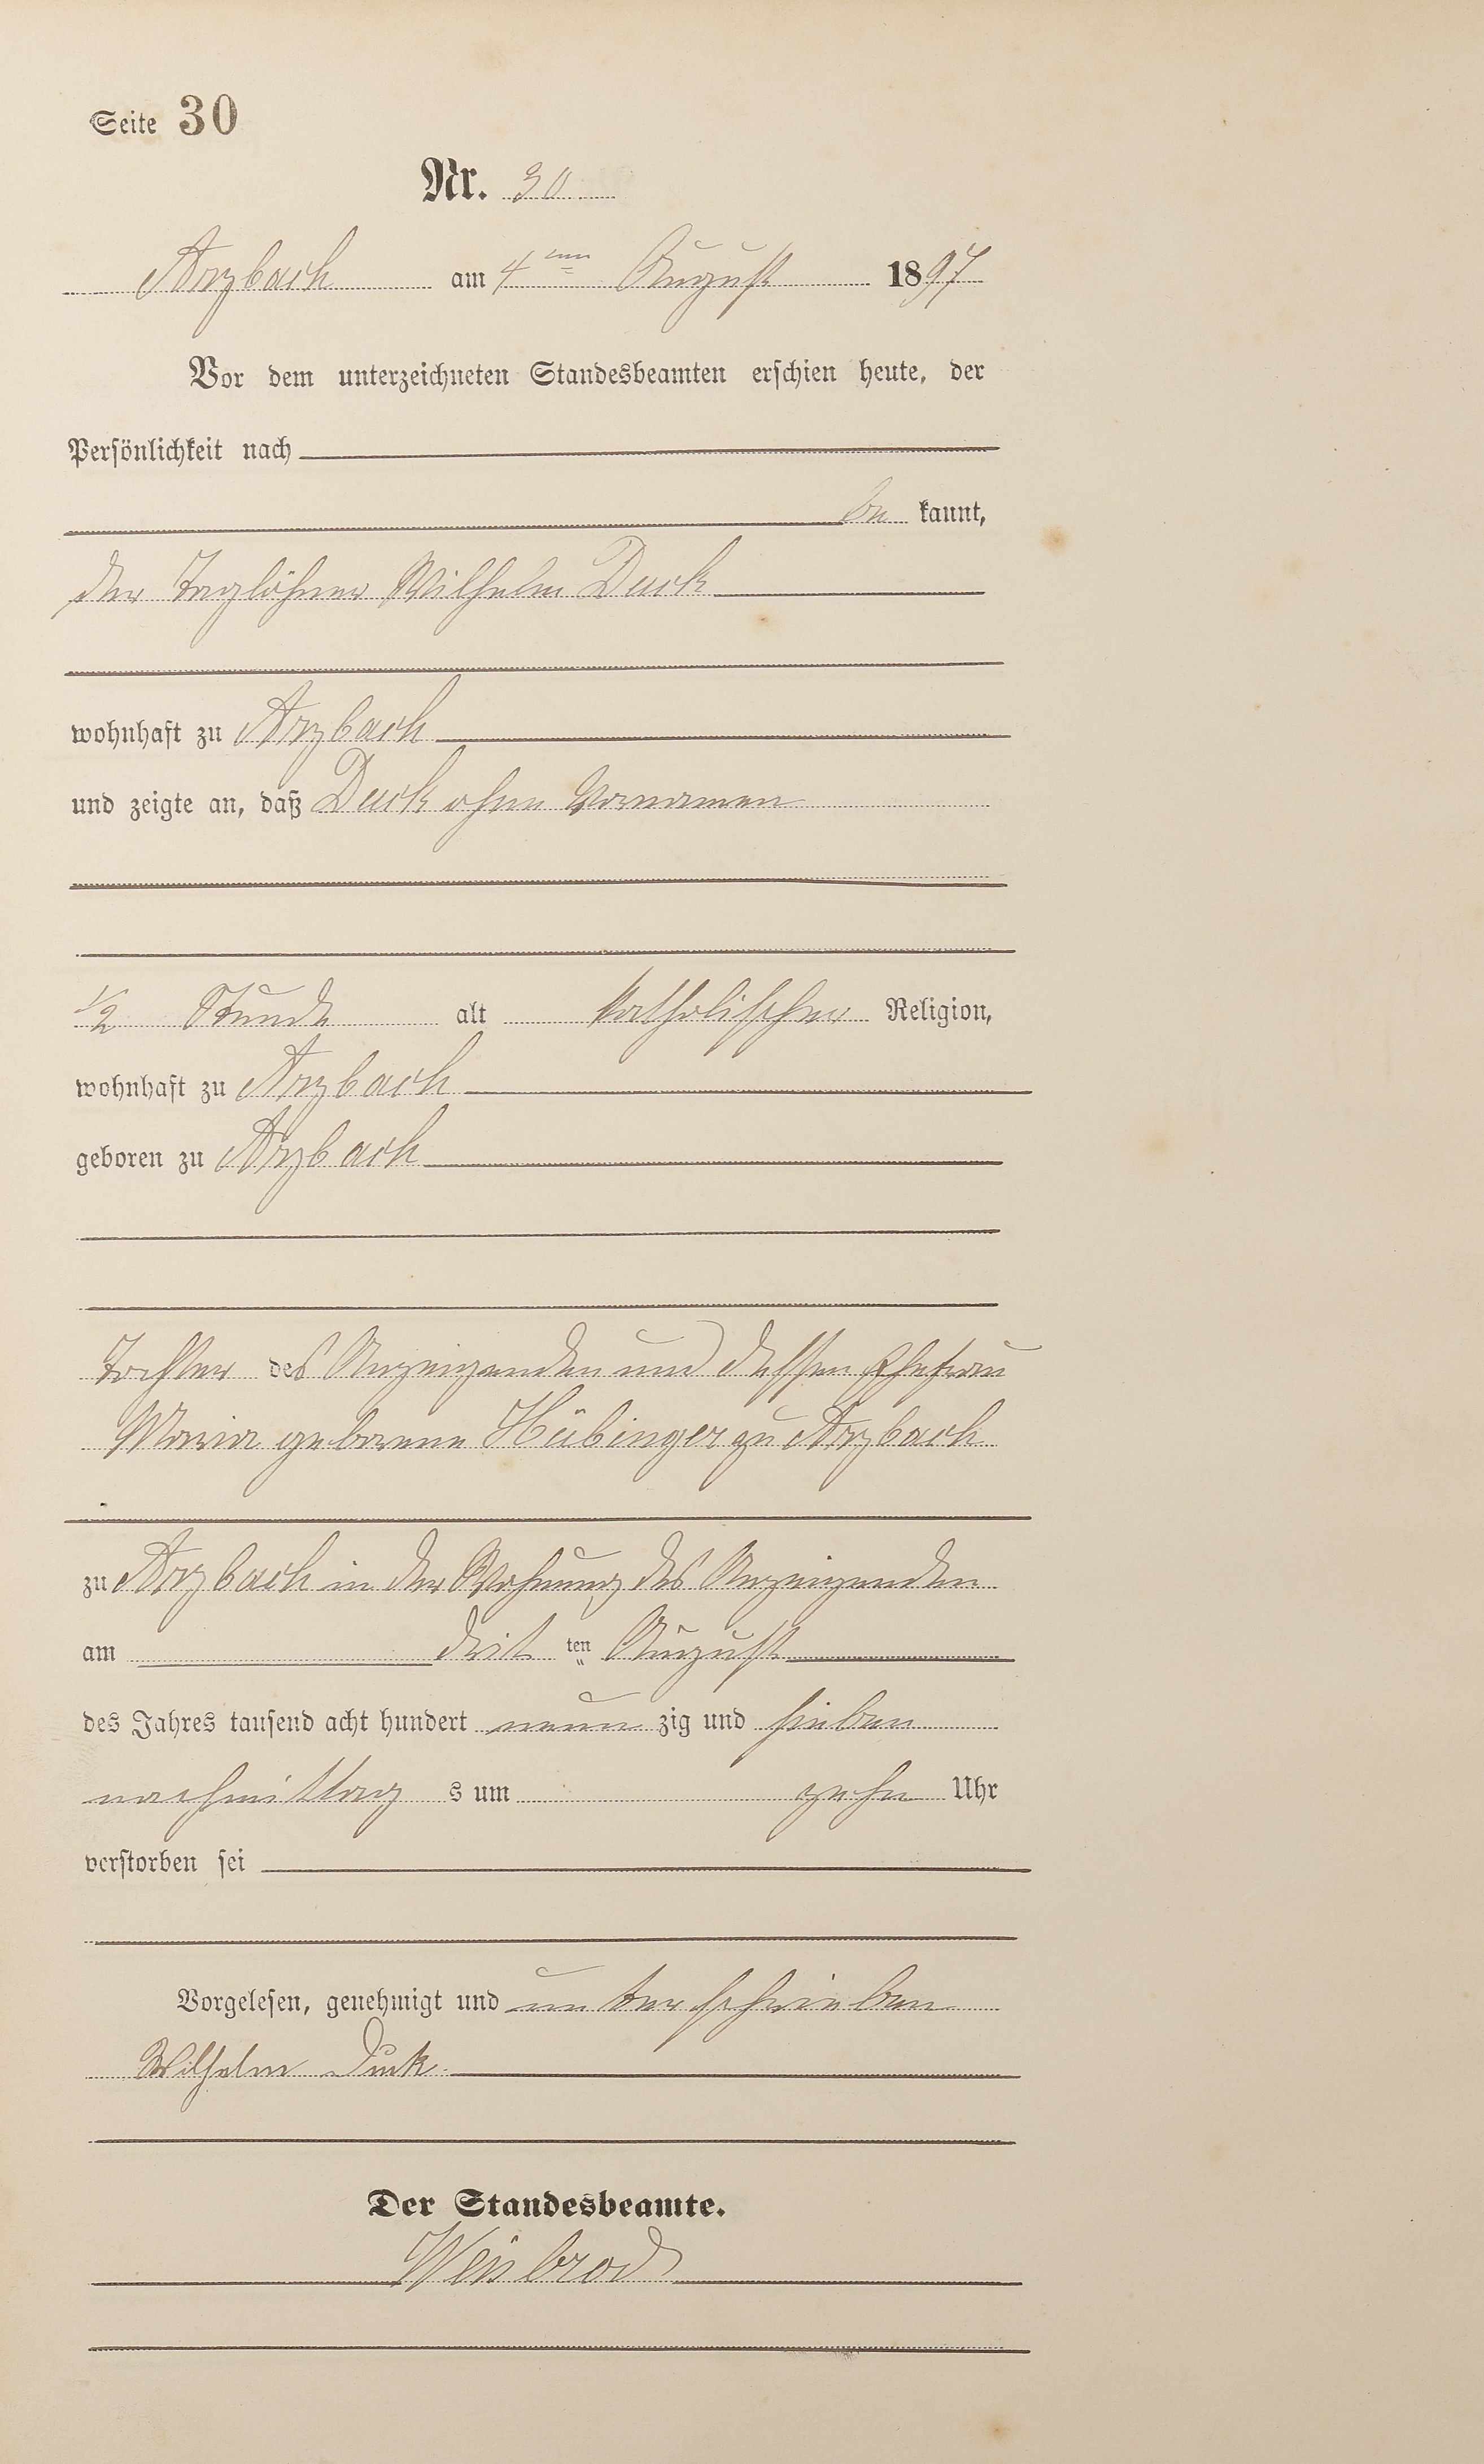 Seite 30
Nr. 30
Arzbach am 4ten August 1897
Vor dem unterzeichneten Standesbeamten erschien heute, der
Persönlichkeit nach
be kannt,
der Taglöhner Wilhelm Duck
wohnhaft zu Arzbach
und zeigte an, daß Duck ohne Vornamen
1/2 Stunde alt katholischer Religion,
wohnhaft zu Arzbach
geboren zu Arzbach
Tochter des Anzeigenden und dessen Ehefrau
Maria geborene Hübinger zu Arzbach
zu Arzbach in der Wohnung des Anzeigenden
am drit ten August
des Jahres tausend acht hundert neun zig und sieben
nachmittag s um zehn Uhr
verstorben sei
Vorgelesen, genehmigt und unterschrieben
Wilhelm Duck
Der Standesbeamte.
Weisbrod